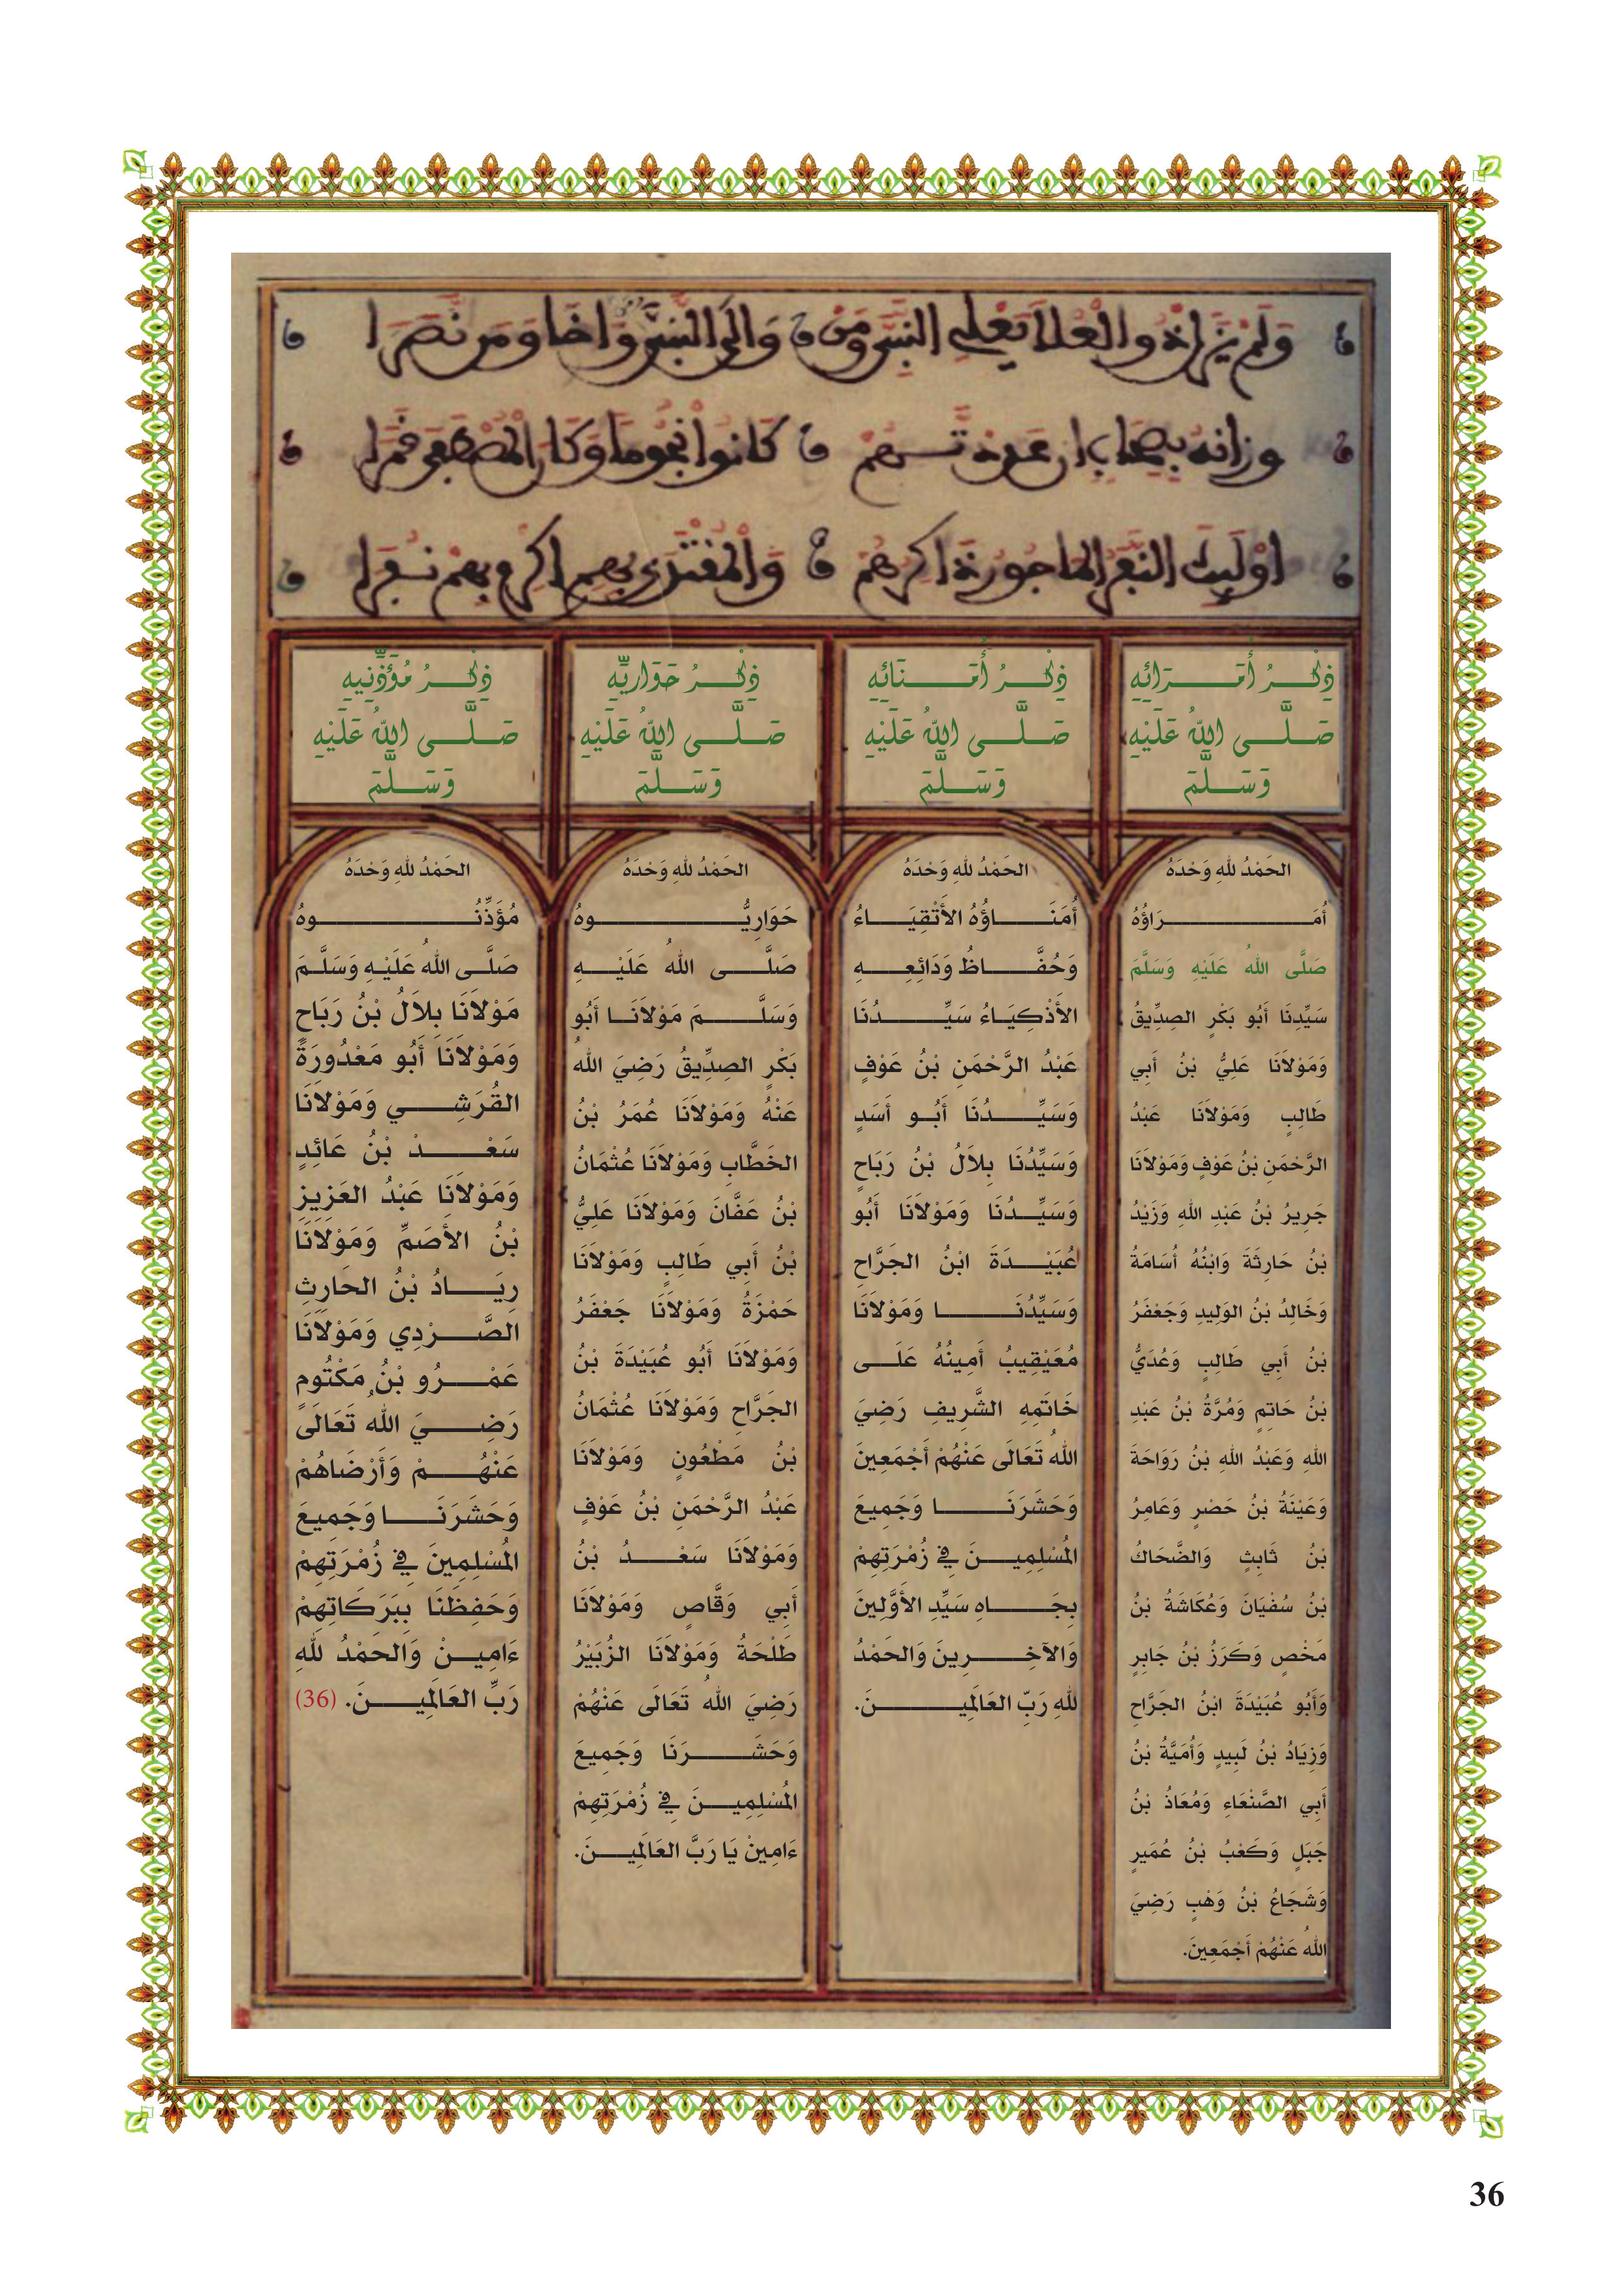 ذِكْرُ أُمَرَائِهِ
صَلَّى اللهُ عَلَيْهِ
وَسَلَّمَ
الحَمْدُ للهِ وَحْدَهُ
أُمَرَاؤُهُ
صَلَّى اللهُ عَلَيْهِ وَسَلَّمَ
سَيِّدِنَا أَبُو بَكْرِ الصِدِّيقُ
وَمَوْلاَنَا عَلِيُّ بْنُ أَبِي
طَالِبٍ وَمَوْلاَنَا عَبْدُ
الرَّحْمَنِ بْنُ عَوْفٍ وَمَوْلاَنَا
جَرِيرُ بْنُ عَبْدِ اللهِ وَزَيْدُ
بْنُ حَارِثَةَ وَابْنُهُ أُسَامَةُ
وَخَالِدُ بْنُ الوَلِيدِ وَجَعْفَرُ
بْنُ أَبِي طَالِبٍ وَعُدَيُّ
بْنُ حَاتِمٍ وَمُرَّةُ بْنُ عَبْدِ
اللهِ وَعَبْدُ اللهِ بْنُ رَوَاحَةَ
وَعَيْنَةُ بْنُ حَصْرٍ وَعَامِرُ
بْنُ ثَابِثٍ وَالضَّحَاكُ
بْنُ سُفْيَانَ وَعُكَاشَةُ بْنُ
مَحْصٍ وَكَرَزُ بْنُ جَابِرٍ
وَأَبُو عُبَيْدَةَ ابْنُ الجَرَّاحِ
وَزِيَادُ بْنُ لَبِيدٍ وَأُمَيَّةُ بْنُ
أَبِي الصَّنْعَاءِ وَمُعَاذُ بْنُ
جَبَلٍ وَكَعْبُ بْنُ عُمَيرٍ
وَشَجَاعُ بْنُ وَهْبٍ رَضِيَ
اللهُ عَنْهُمْ أَجْمَعِينَ.
ذِكْرُ أُمَنَائِهِ
صَلَّى اللهُ عَلَيْهِ
وَسَلَّمَ
الحَمْدُ للهِ وَحْدَهُ
أُمَنَاؤُهُ الأَتْقِيَاءُ
وَحُفَّاظُ وَدَائِعِهِ
الأَذْكِيَاءُ سَيِّدُنَا
عَبْدُ الرَّحْمَنِ بْنُ عَوْفٍ
وَسَيِّدُنَا أَبُو أَسَدٍ
وَسَيِّدُنَا بِلاَلُ بْنُ رَبَاحٍ
وَسَيِّدُنَا وَمَوْلاَنَا أَبُو
عُبَيْدَةَ ابْنُ الجَرَّاحِ
وَسَيِّدُنَا وَمَوْلاَنَا
مُعَيْقِيبُ أَمِينُهُ عَلَى
خَاتَمِهِ الشَّرِيفِ رَضِيَ
اللهُ تَعَالَى عَنْهُمْ أَجْمَعِينَ
وَحَشَرَنَا وَجَمِيعَ
المُسْلِمِينَ فِي زُمْرَتِهِمْ
بِجَاهِ سَيِّدِ الأَوَّلِينَ
وَالآخِرِينَ وَالحَمْدُ
للهِ رَبِّ العَالَمِينَ.
ذِكْرُ حَوَارِيِّهِ
صَلَّى اللهُ عَلَيْهِ
وَسَلَّمَ
الحَمْدُ للهِ وَحْدَهُ
حَوَارِيُّوهُ
صَلَّى اللهُ عَلَيْهِ
وَسَلَّمَ مَوْلاَنَا أَبُو
بَكْرِ الصِدِّيقُ رَضِيَ اللهُ
عَنْهُ وَمَوْلاَنَا عُمَرُ بْنُ
الخَطَّابِ وَمَوْلاَنَا عُثْمَانُ
بْنُ عَفَّانَ وَمَوْلاَنَا عَلِيُّ
بْنُ أَبِي طَالِبٍ وَمَوْلاَنَا
حَمْزَةُ وَمَوْلاَنَا جَعْفَرُ
وَمَوْلاَنَا أَبُو عُبَيْدَةَ بْنُ
الجَرَّاحِ وَمَوْلاَنَا عُثْمَانُ
بْنُ مَطْعُونٍ وَمَوْلاَنَا
عَبْدُ الرَّحْمَنِ بْنُ عَوْفٍ
وَمَوْلاَنَا سَعْدُ بْنُ
أَبِي وَقَّاصٍ وَمَوْلاَنَا
طَلْحَةُ وَمَوْلاَنَا الزُبَيْرُ
رَضِيَ اللهُ تَعَالَى عَنْهُمْ
وَحَشَرَنَا وَجَمِيعَ
المُسْلِمِينَ فِي زُمْرَتِهِمْ
ءَامِينْ يَا رَبَّ العَالَمِينَ.
ذِكْرُ مُؤَذِّنِيهِ
صَلَّى اللهُ عَلَيْهِ
وَسَلَّمَ
الحَمْدُ للهِ وَحْدَهُ
مُؤَذِّنُوهُ
صَلَّى اللهُ عَلَيْهِ وَسَلَّمَ
مَوْلاَنَا بِلاَلُ بْنُ رَبَاحٍ
وَمَوْلاَنَا أَبُو مَعْدُورَةَ
القُرَشِي وَمَوْلاَنَا
سَعْدْ بْنُ عَائِدٍ
وَمَوْلاَنَا عَبْدُ العَزِيزِ
بْنُ الأَصَمِّ وَمَوْلاَنَا
رِيَادُ بْنُ الحَارِثِ
الصَّرْدِي وَمَوْلاَنَا
عَمْرُو بْنُ مَكْتُومٍ
رَضِيَ اللهُ تَعَالَى
عَنْهُمْ وَأَرْضَاهُمْ
وَحَشَرَنَا وَجَمِيعَ
المُسْلِمِينَ فِي زُمْرَتِهِمْ
وَحَفِظَنَا بِبَرَكَاتِهِمْ
ءَامِينْ وَالحَمْدُ للهِ
رَبِّ العَالَمِينَ. (36)
36